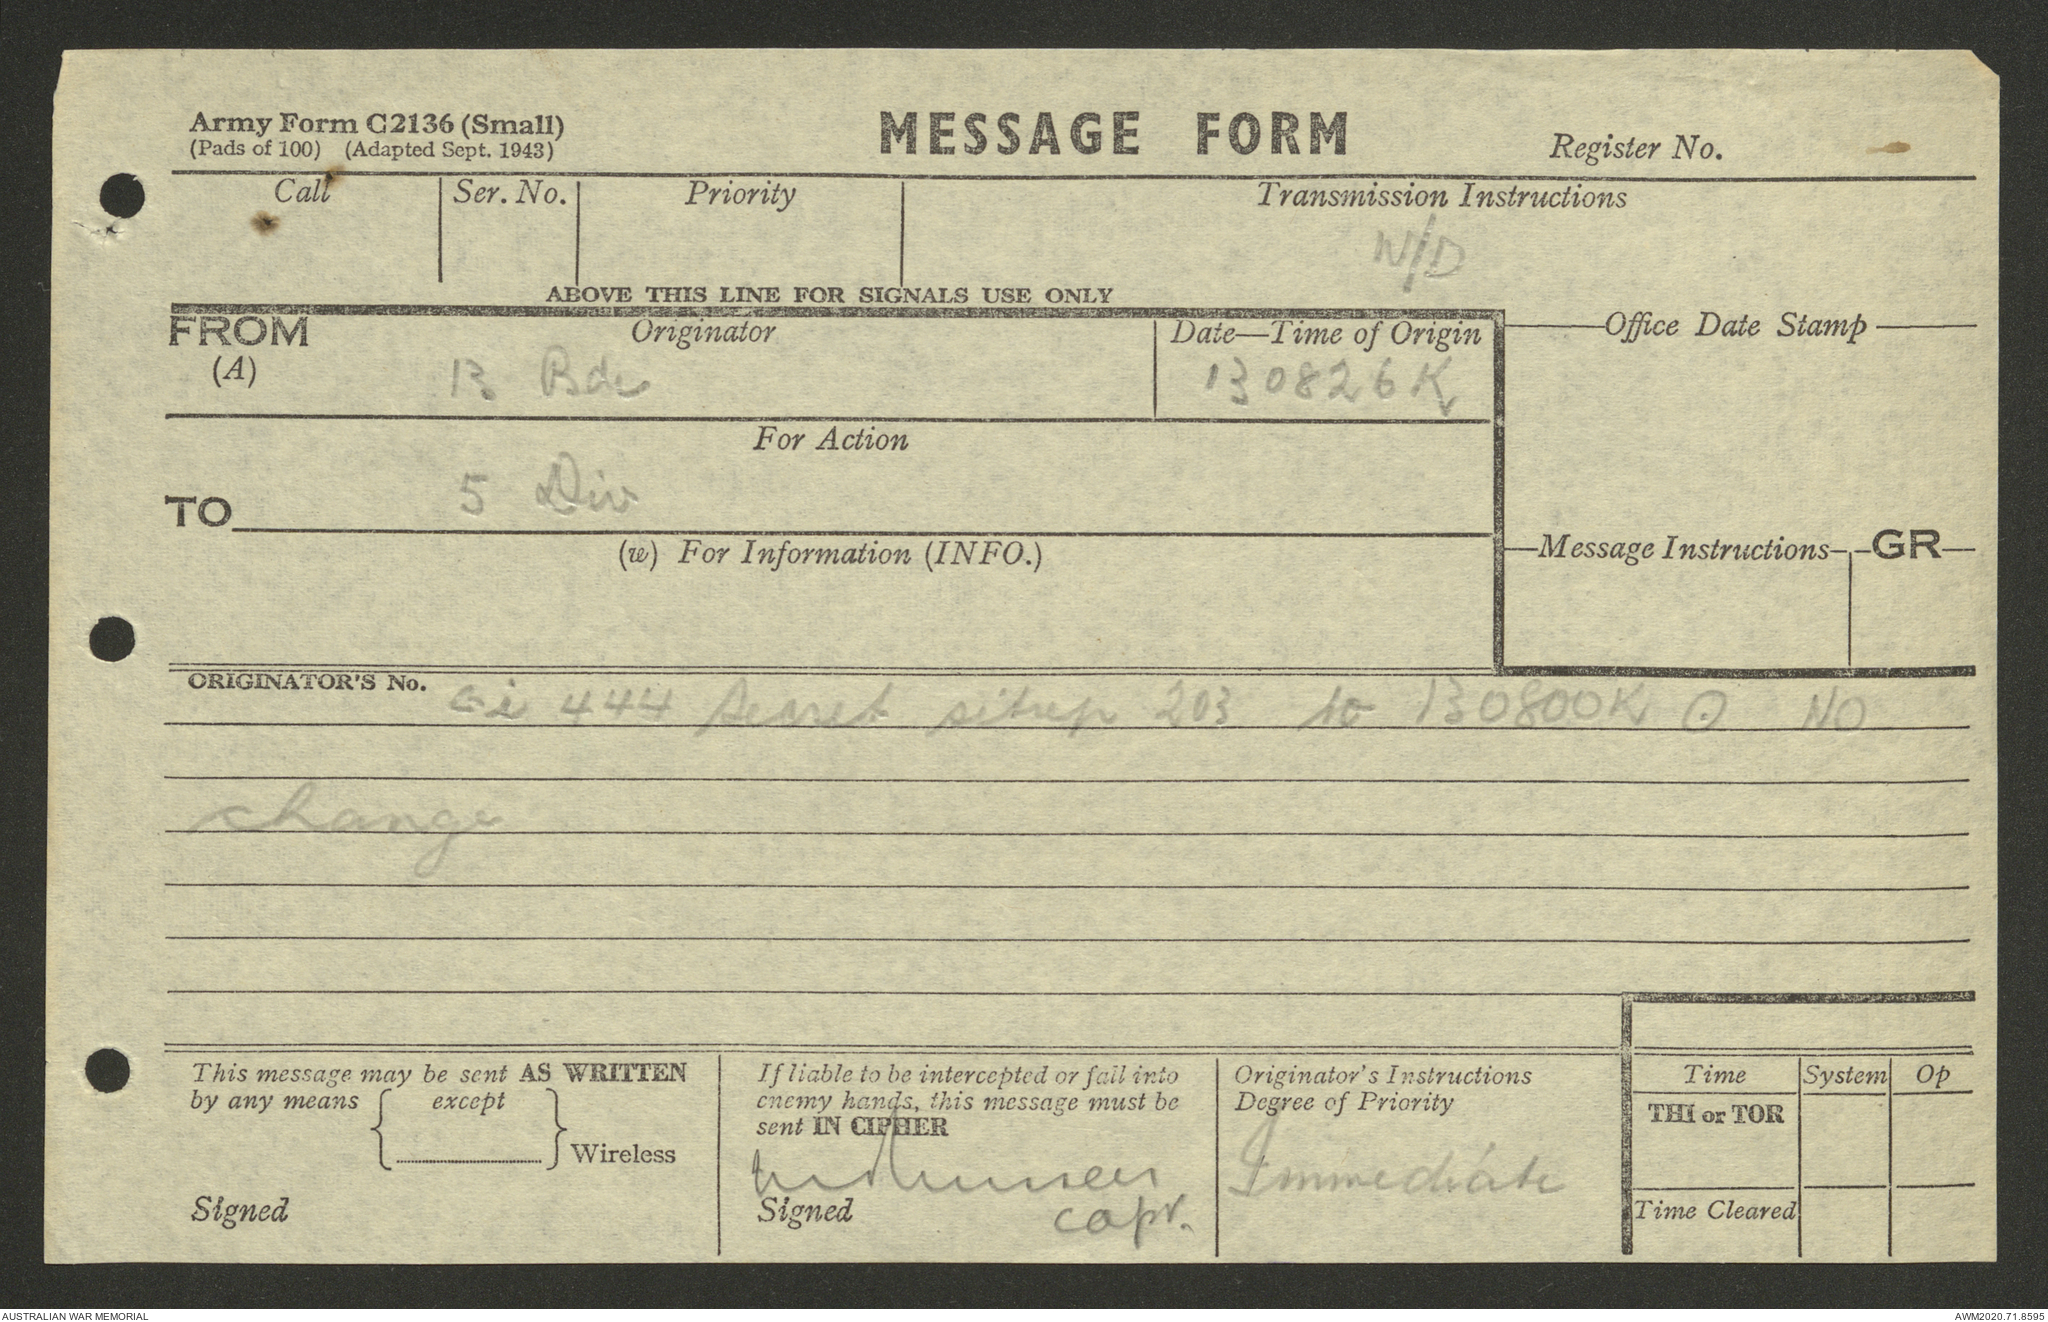 Army Form C2136 (Small)
(Pads of 100) (Adapted Sept. 1943)
MESSAGE FORM
Register No.
Call
Ser. No.
Priority
Transmission Instructions
W/D
ABOVE THIS LINE FOR SIGNALS USE ONLY
FROM
(A)
Originator
13 Bde
Date—Time of Origin
130826K
Office Date Stamp
For Action
TO
5 Div
(w) For Information (INFO.)
Message Instructions
GR
ORIGINATOR'S No.
Gi 444 secret sitrep 203 to 130800K O NO
change
This message may be sent AS WRITTEN
by any means { except } Wireless
Signed
If liable to be intercepted or fall into
enemy hands, this message must be
sent IN CIPHER
Signed
capt.
Originator's Instructions
Degree of Priority
Immediate
Time
System
Op
THI or TOR
Time Cleared
AUSTRALIAN WAR MEMORIAL
AWM2020.71.8595